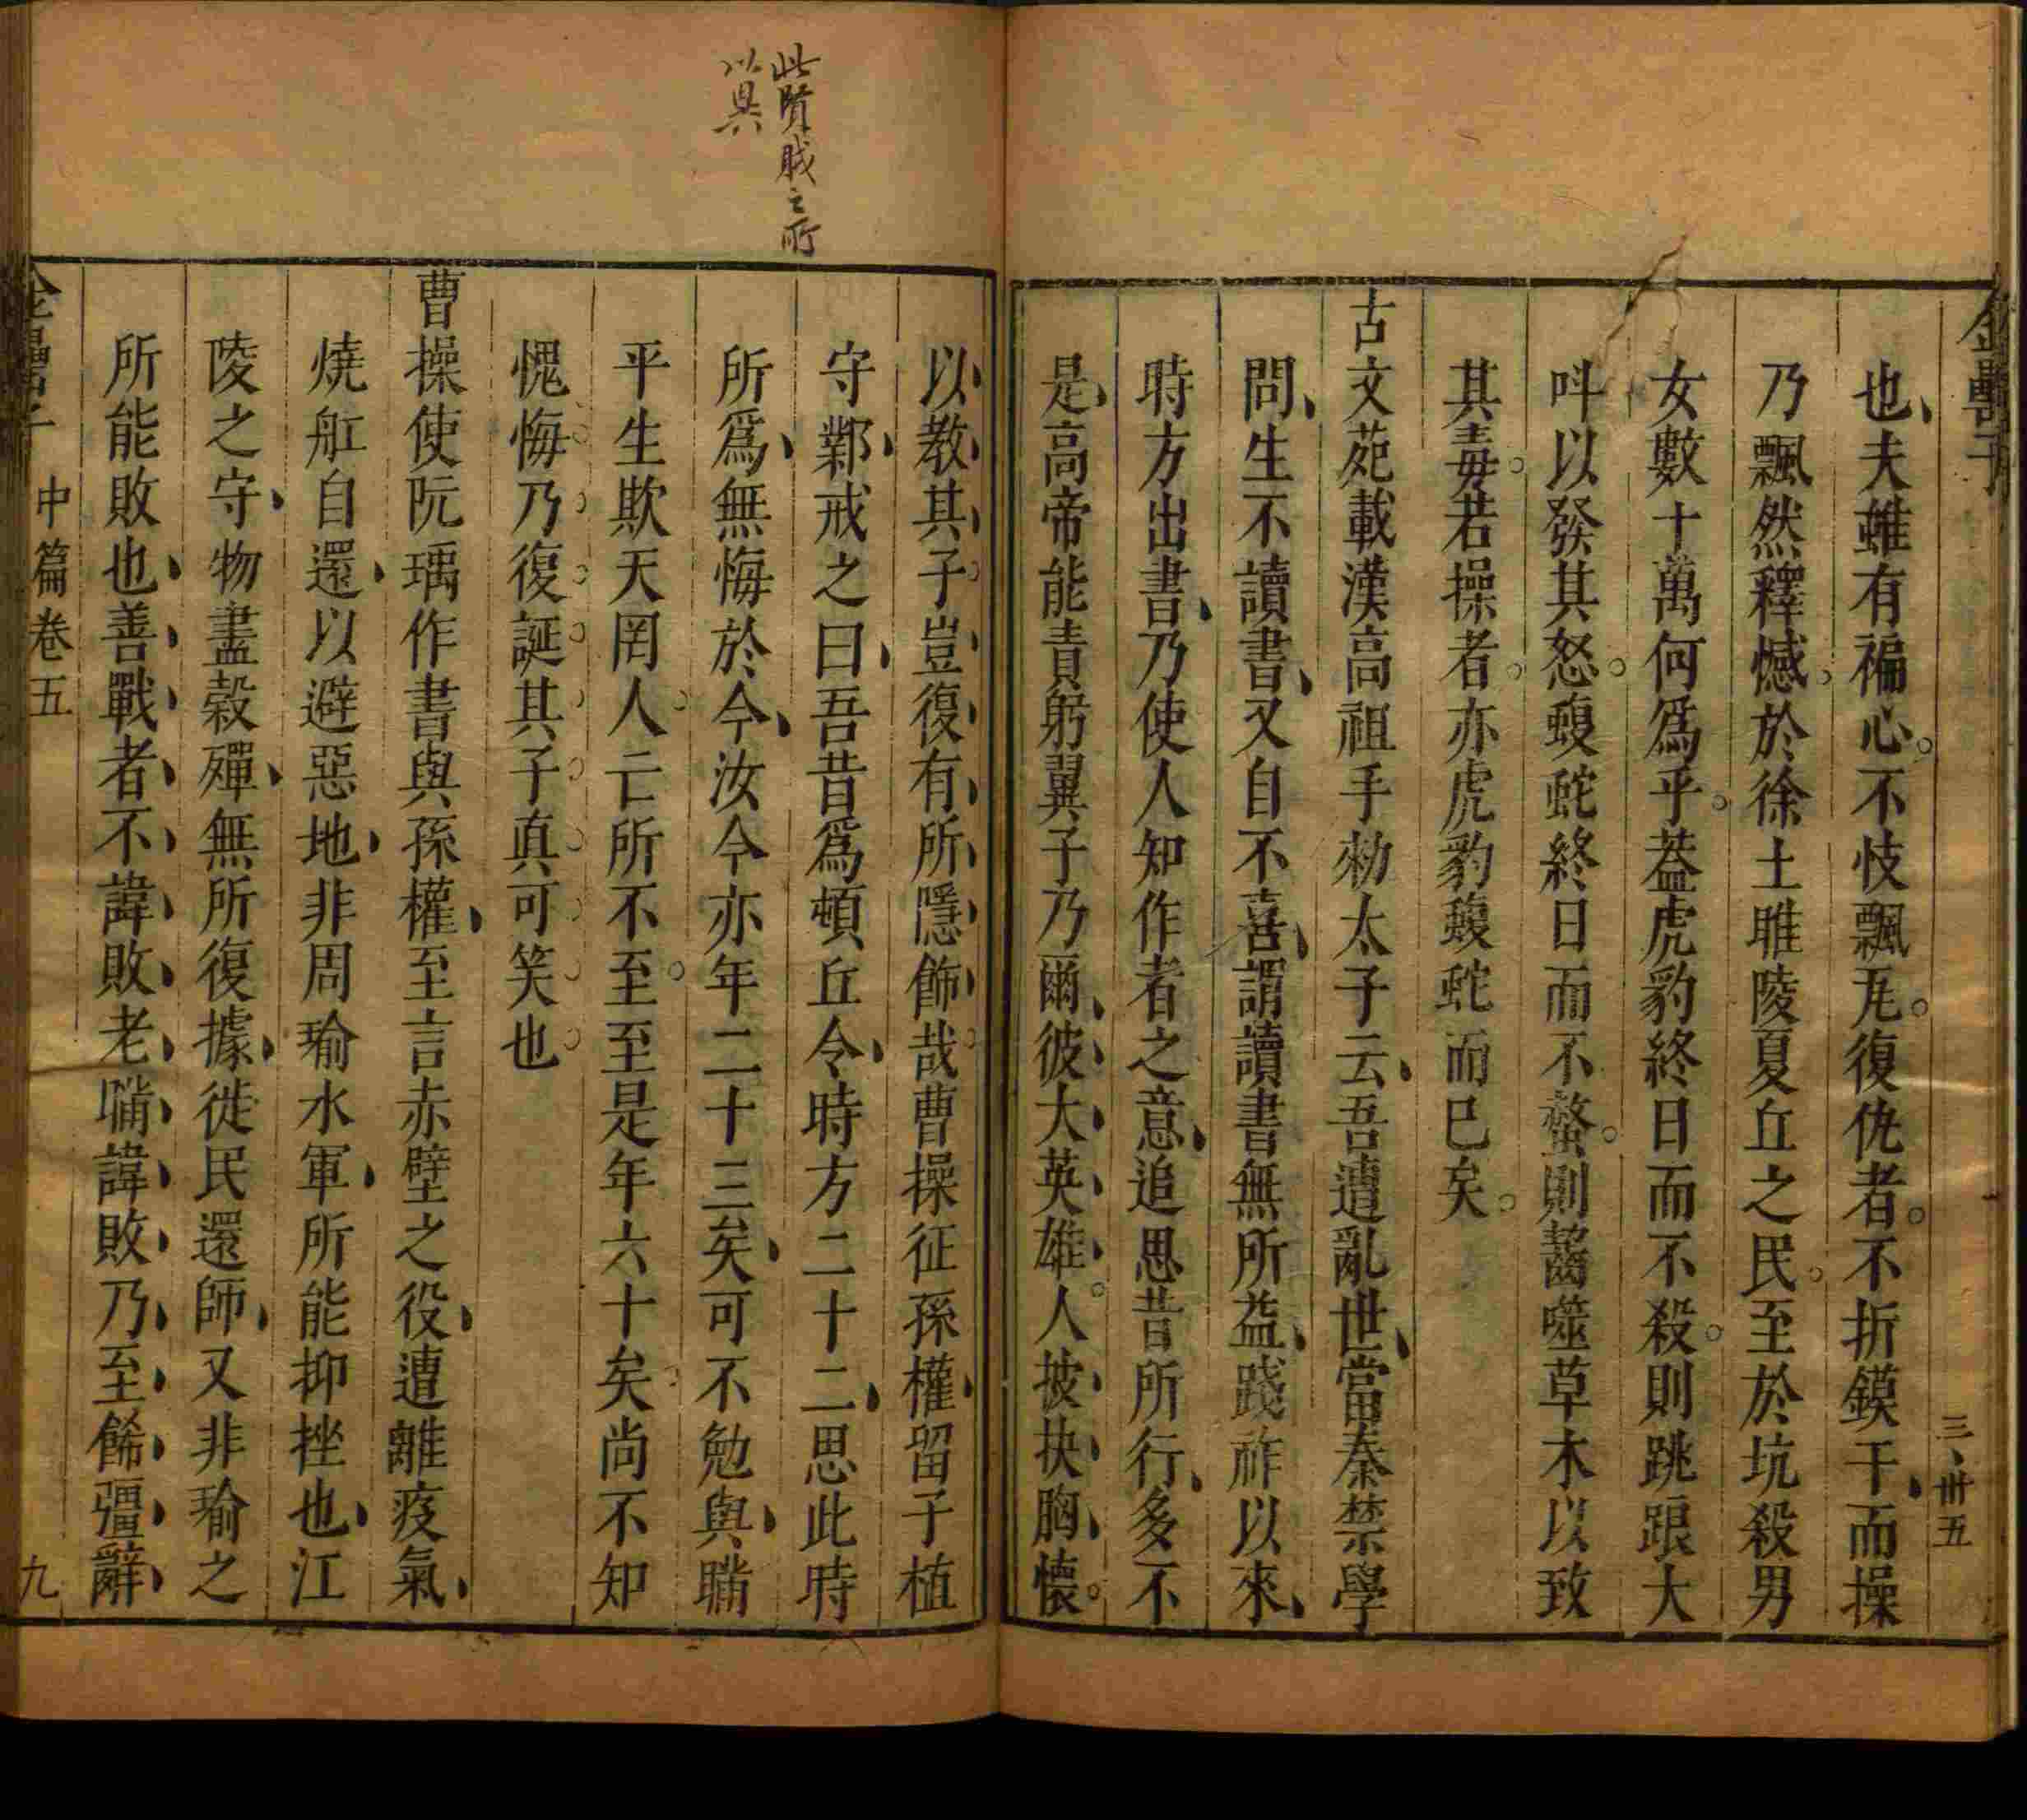 三卅五
也夫雖有褊心不忮飄瓦復仇者不折鏌干而操
乃飄然釋憾於徐土睢陵夏丘之民至於坑殺男
女數十萬何爲乎葢虎豹終日而不殺則跳踉大
呌以發其怒蝮蛇終日而不螫則齧噬草木以致
其毒若操者亦虎豹蝮蛇而已矣
古文苑載漢高祖手勑太子云吾遭亂世當秦禁學
問生不讀書又自不喜謂讀書無所益踐祚以來
時方出書乃使人知作者之意追思昔所行多不
是高帝能責躬翼子乃爾彼大英雄人披抉胸懷
此賢賊之所
以異
以教其子豈復有所隱飾哉曹操征孫權留子植
守鄴戒之曰吾昔爲頓丘令時方二十二思此時
所爲無悔於今汝今亦年二十三矣可不勉與瞞
平生欺天罔人亡所不至至是年六十矣尚不知
愧悔乃復誕其子真可笑也
曹操使阮瑀作書與孫權至言赤壁之役遭離疫氣
燒舡自還以避惡地非周瑜水軍所能抑挫也江
陵之守物盡穀殫無所復據徙民還師又非瑜之
所能敗也善戰者不諱敗老瞞諱敗乃至餙彊辭
中篇卷五
九